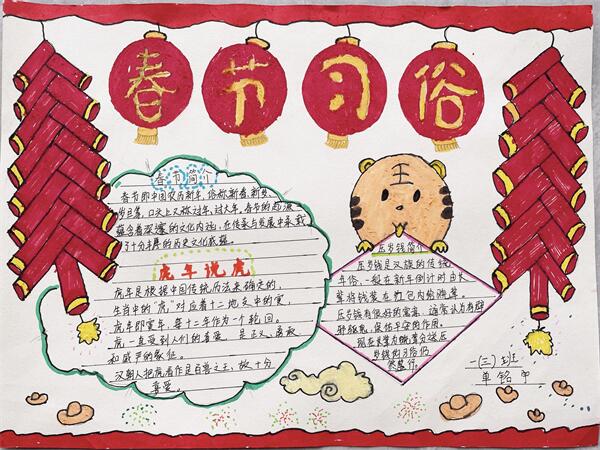 春节习俗
春节简介
春节即中国农历新年,俗称新春、新岁、
岁旦等,口头上又称过年、过大年。春节的起源
蕴含着深邃的文化内涵,在传承与发展中承载
了十分丰厚的历史文化底蕴。
虎年说虎
虎年是根据中国传统历法来确定的,
生肖中的“虎”对应着十二地支中的寅,
虎年即寅年,每十二年作为一个轮回。
虎一直受到人们的喜爱,是正义、勇敢
和威严的象征。
汉朝人把虎看作是百兽之王,故十分
喜爱。
王
压岁钱简介
压岁钱是汉族的传统
年俗,一般在新年倒计时由长
辈将钱装在红包内给晚辈。
压岁钱有很好的寓意,通常认为有辟
邪驱鬼,保佑平安的作用。
现在长辈为晚辈分送压
岁钱的习俗仍
然盛行。
一(三)班
单铭